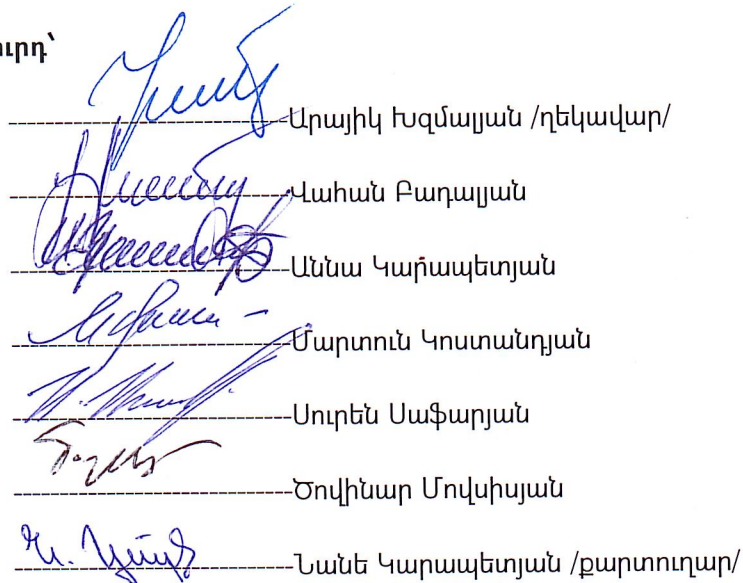 ւրդ՝
Արայիկ Խզմալյան /ղեկավար/
Վահան Բադալյան
Աննա Կարապետյան
Մարտուն Կոստանդյան
Սուրեն Սաֆարյան
Ծովինար Մովսիսյան
Նանե Կարապետյան /քարտուղար/